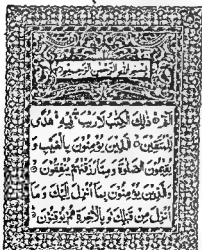 بسم الله الرحمن الرحيم
الم ذلك الكتب لا ريب فيه هدى
للمتقين الذين يؤمنون بالغيب و
يقيمون الصلوة ومما رزقنهم ينفقون
والذين يؤمنون بما أنزل إليك وما
أنزل من قبلك وبالآخرة هم يوقنون